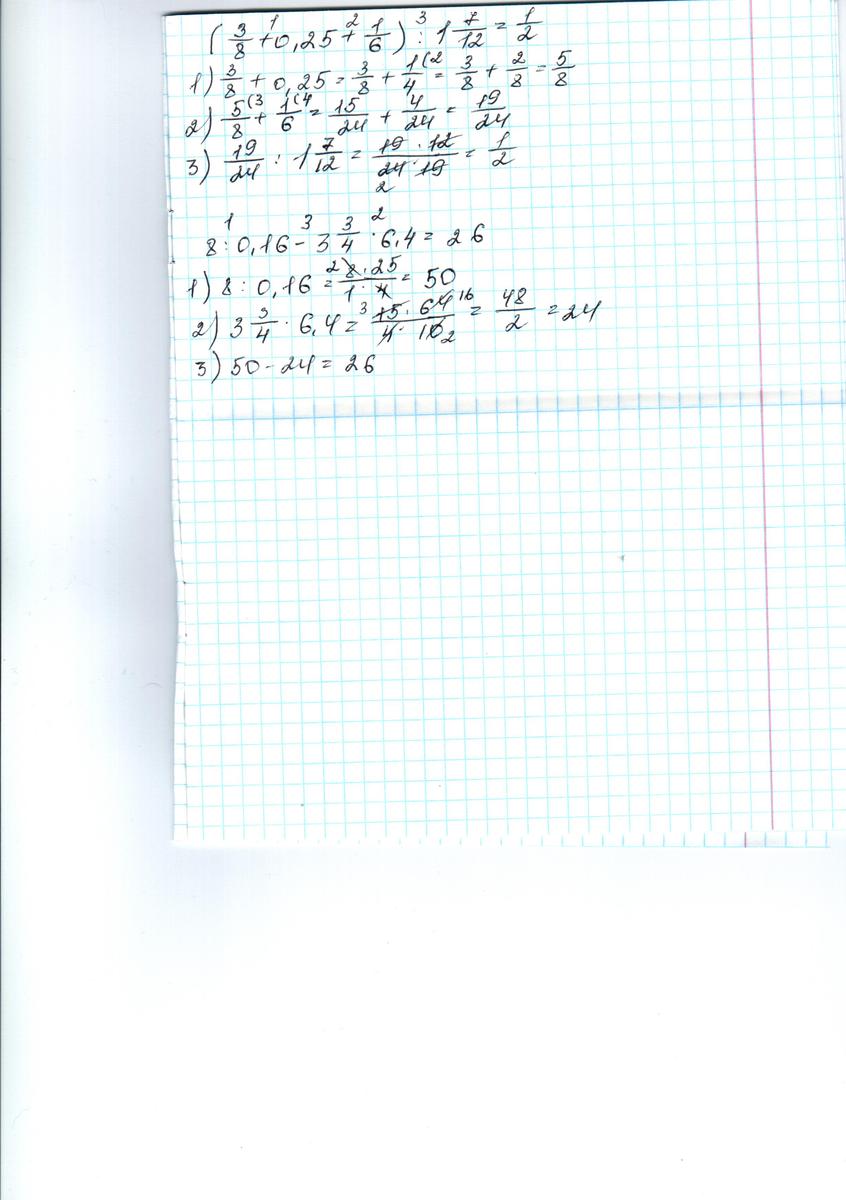 (3/8 +¹ 0,25 +² 1/6) :³ 1 7/12 = 1/2
1) 3/8 + 0,25 = 3/8 + 1/4 (2 = 3/8 + 2/8 = 5/8
2) 5/8 (3 + 1/6 (4 = 15/24 + 4/24 = 19/24
3) 19/24 : 1 7/12 = 19 · 12 / 24 · 19 2 = 1/2
8 :¹ 0,16 -³ 3 3/4 ·² 6,4 = 26
1) 8 : 0,16 = 2 8 · 25 / 1 · 4 = 50
2) 3 3/4 · 6,4 = 3 15 · 64 16 / 4 · 10 2 = 48/2 = 24
3) 50 - 24 = 26